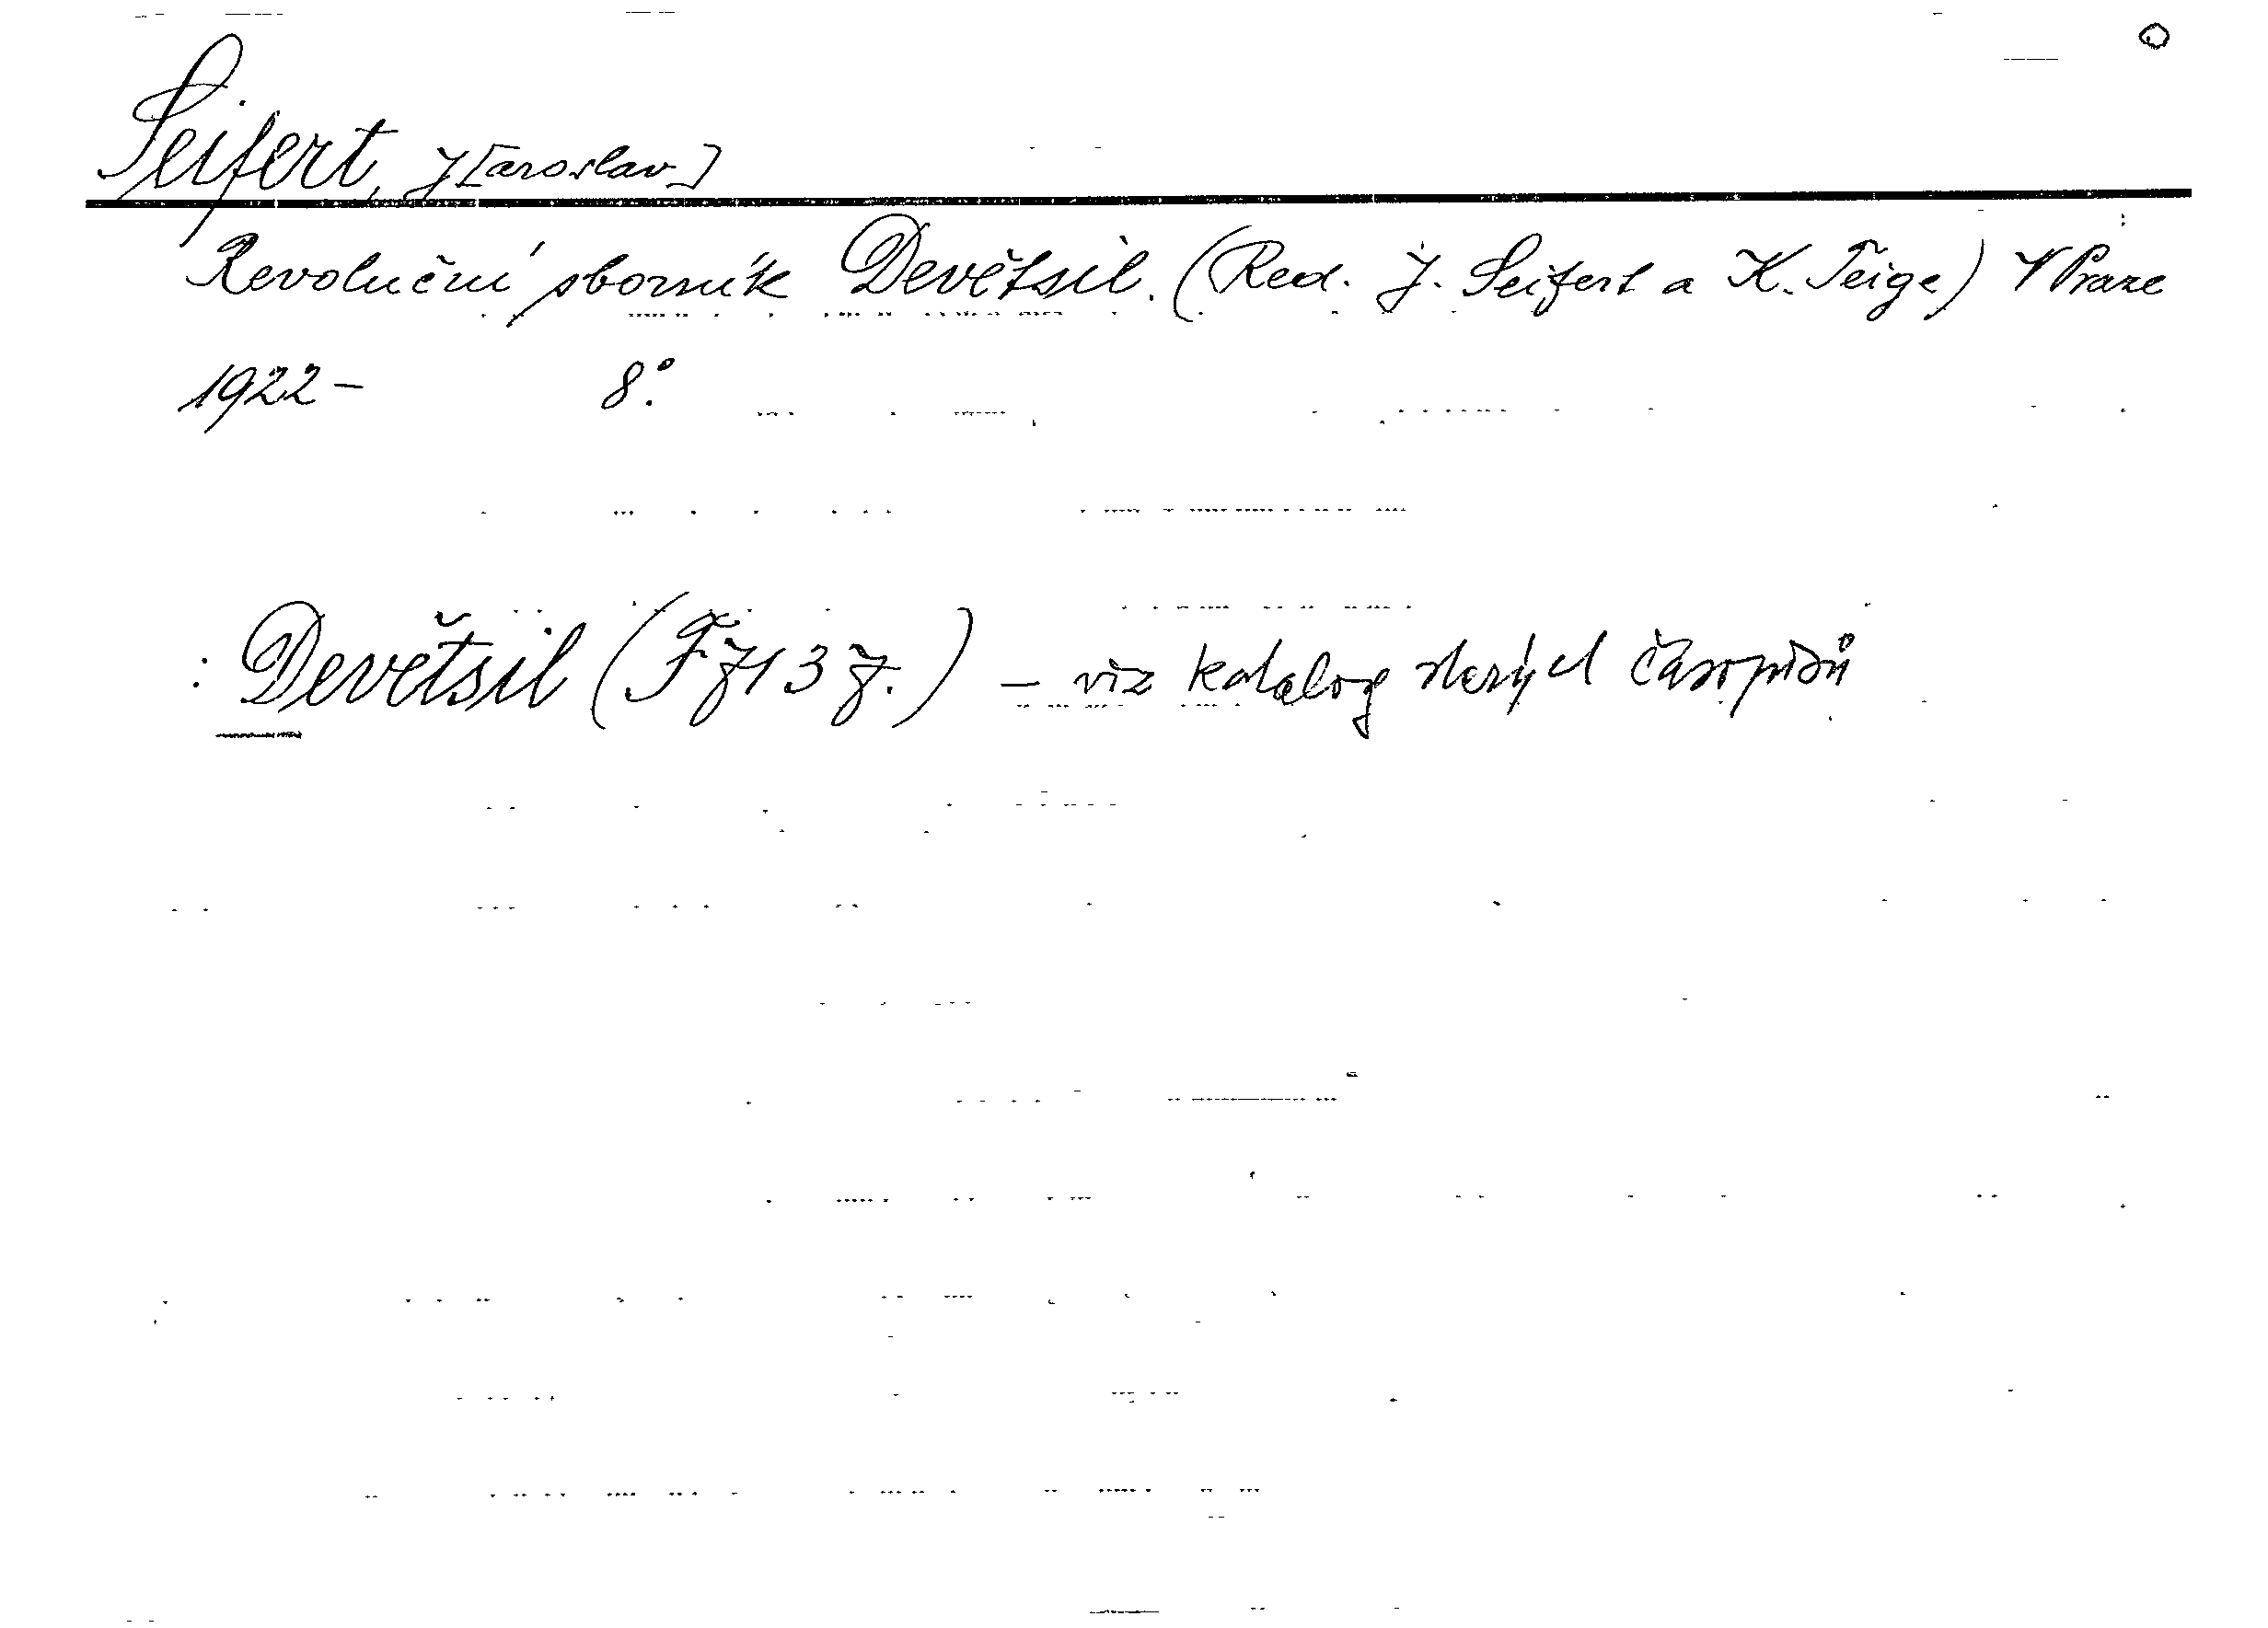 Seifert, J[aroslav]
Revoluční sborník Devětsil. (Red. J. Seifert a K. Teige) V Praze
1922 – 8°.
: Devětsil ( ) – viz katalog starých časopisů